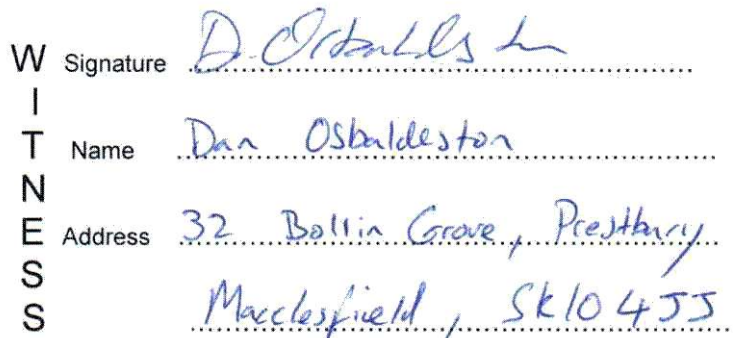 WITNESS
Signature D. Osbaldeston
Name Dan Osbaldeston
Address 32 Bollin Grove, Prestbury
Macclesfield, SK10 4JJ